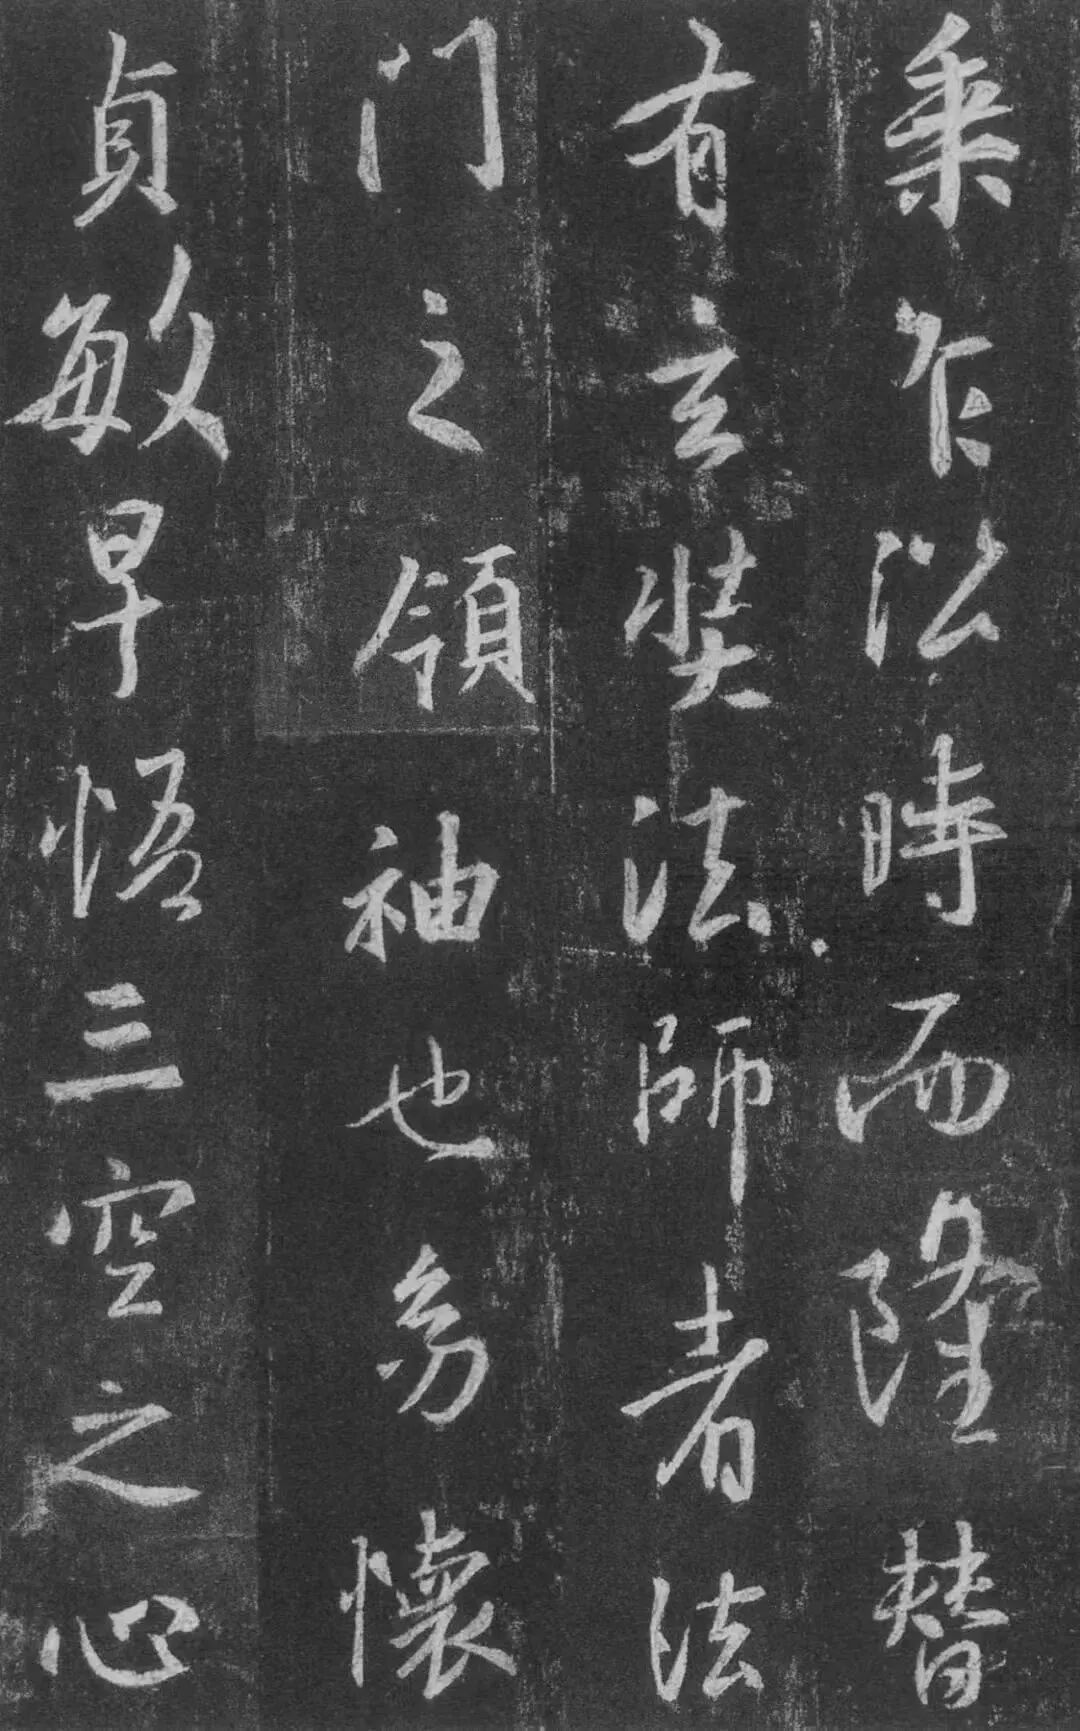 乘乍沿時而隆替
有玄奘法師者法
门之領袖也㓜懷
貞敏早悟三空之心